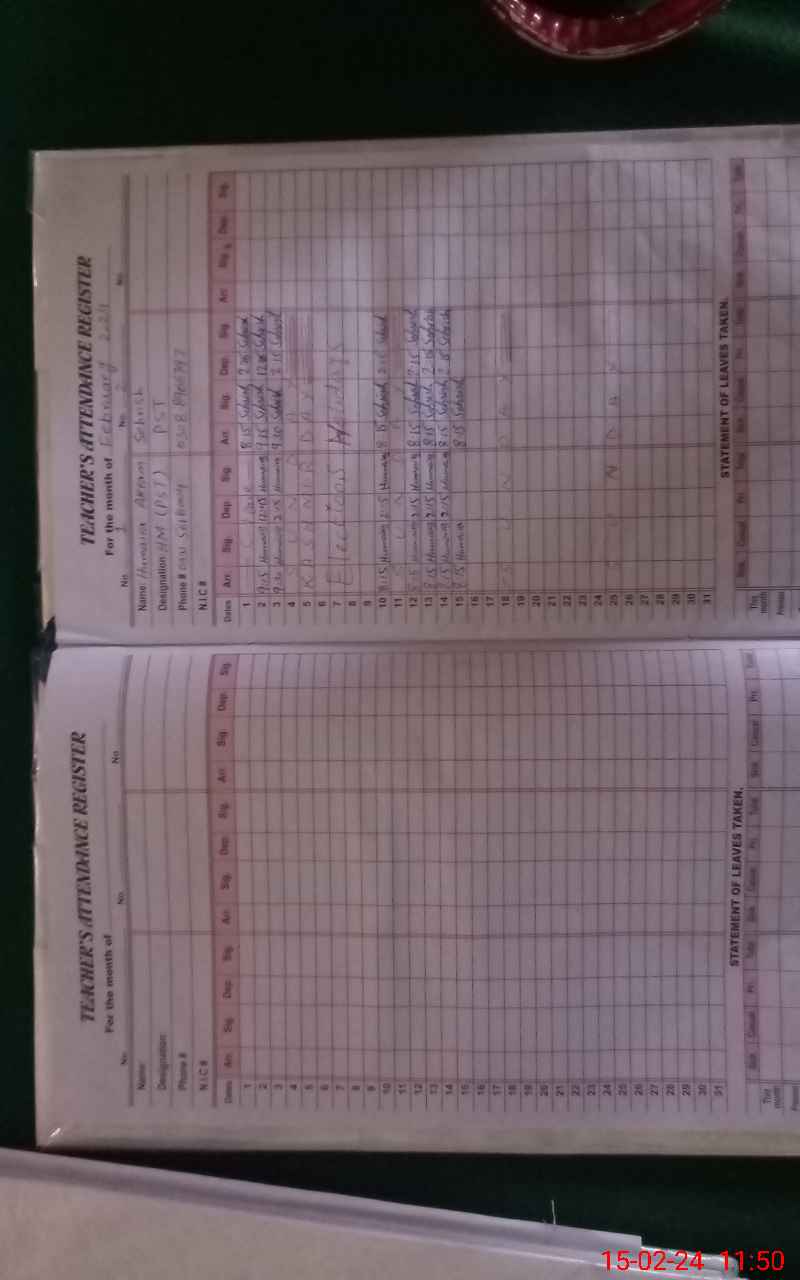 TEACHER'S ATTENDANCE REGISTER
For the month of February 2024
No. 1 No. 2 No.
Name: Humaira Akram Sehrish
Designation: HM (PST) PST
Phone #
N.I.C #
Dates Arr. Sig. Dep. Sig. Arr. Sig. Dep. Sig. Arr. Sig. Dep. Sig.
1 8:15 Sehrish 2:15 Sehrish
2 9:15 Humaira 12:45 Humaira 9:15 Sehrish 12:45 Sehrish
3 9:20 Humaira 2:15 Humaira 9:20 Sehrish 2:15 Sehrish
4 S U N D A Y
5 KASHMIR DAY
6
7 Elections Holidays
8
9
10 8:15 Humaira 2:15 Humaira 8:15 Sehrish 2:15 Sehrish
11 S U N D A Y
12 8:15 Humaira 2:15 Humaira 8:15 Sehrish 2:15 Sehrish
13 8:15 Humaira 2:15 Humaira 8:15 Sehrish 2:15 Sehrish
14 8:15 Humaira 2:15 Humaira 8:15 Sehrish 2:15 Sehrish
15 8:15 Humaira 8:15 Sehrish
16
17
18 S U N D A Y
19
20
21
22
23
24
25 S U N D A Y
26
27
28
29
30
31
STATEMENT OF LEAVES TAKEN.
Sick Casual Pri. Total Sick Casual Pri. Total Sick Casual Pri. Total
This month
Previous
TEACHER'S ATTENDANCE REGISTER
For the month of
No. No. No
Name:
Designation:
Phone #
N.I.C #
Dates Arr. Sig. Dep. Sig. Arr. Sig. Dep. Sig. Arr. Sig. Dep. Sig.
1
2
3
4
5
6
7
8
9
10
11
12
13
14
15
16
17
18
19
20
21
22
23
24
25
26
27
28
29
30
31
STATEMENT OF LEAVES TAKEN.
Sick Casual Pri. Total Sick Casual Pri. Total Sick Casual Pri. Total
This month
15-02-24 11:50